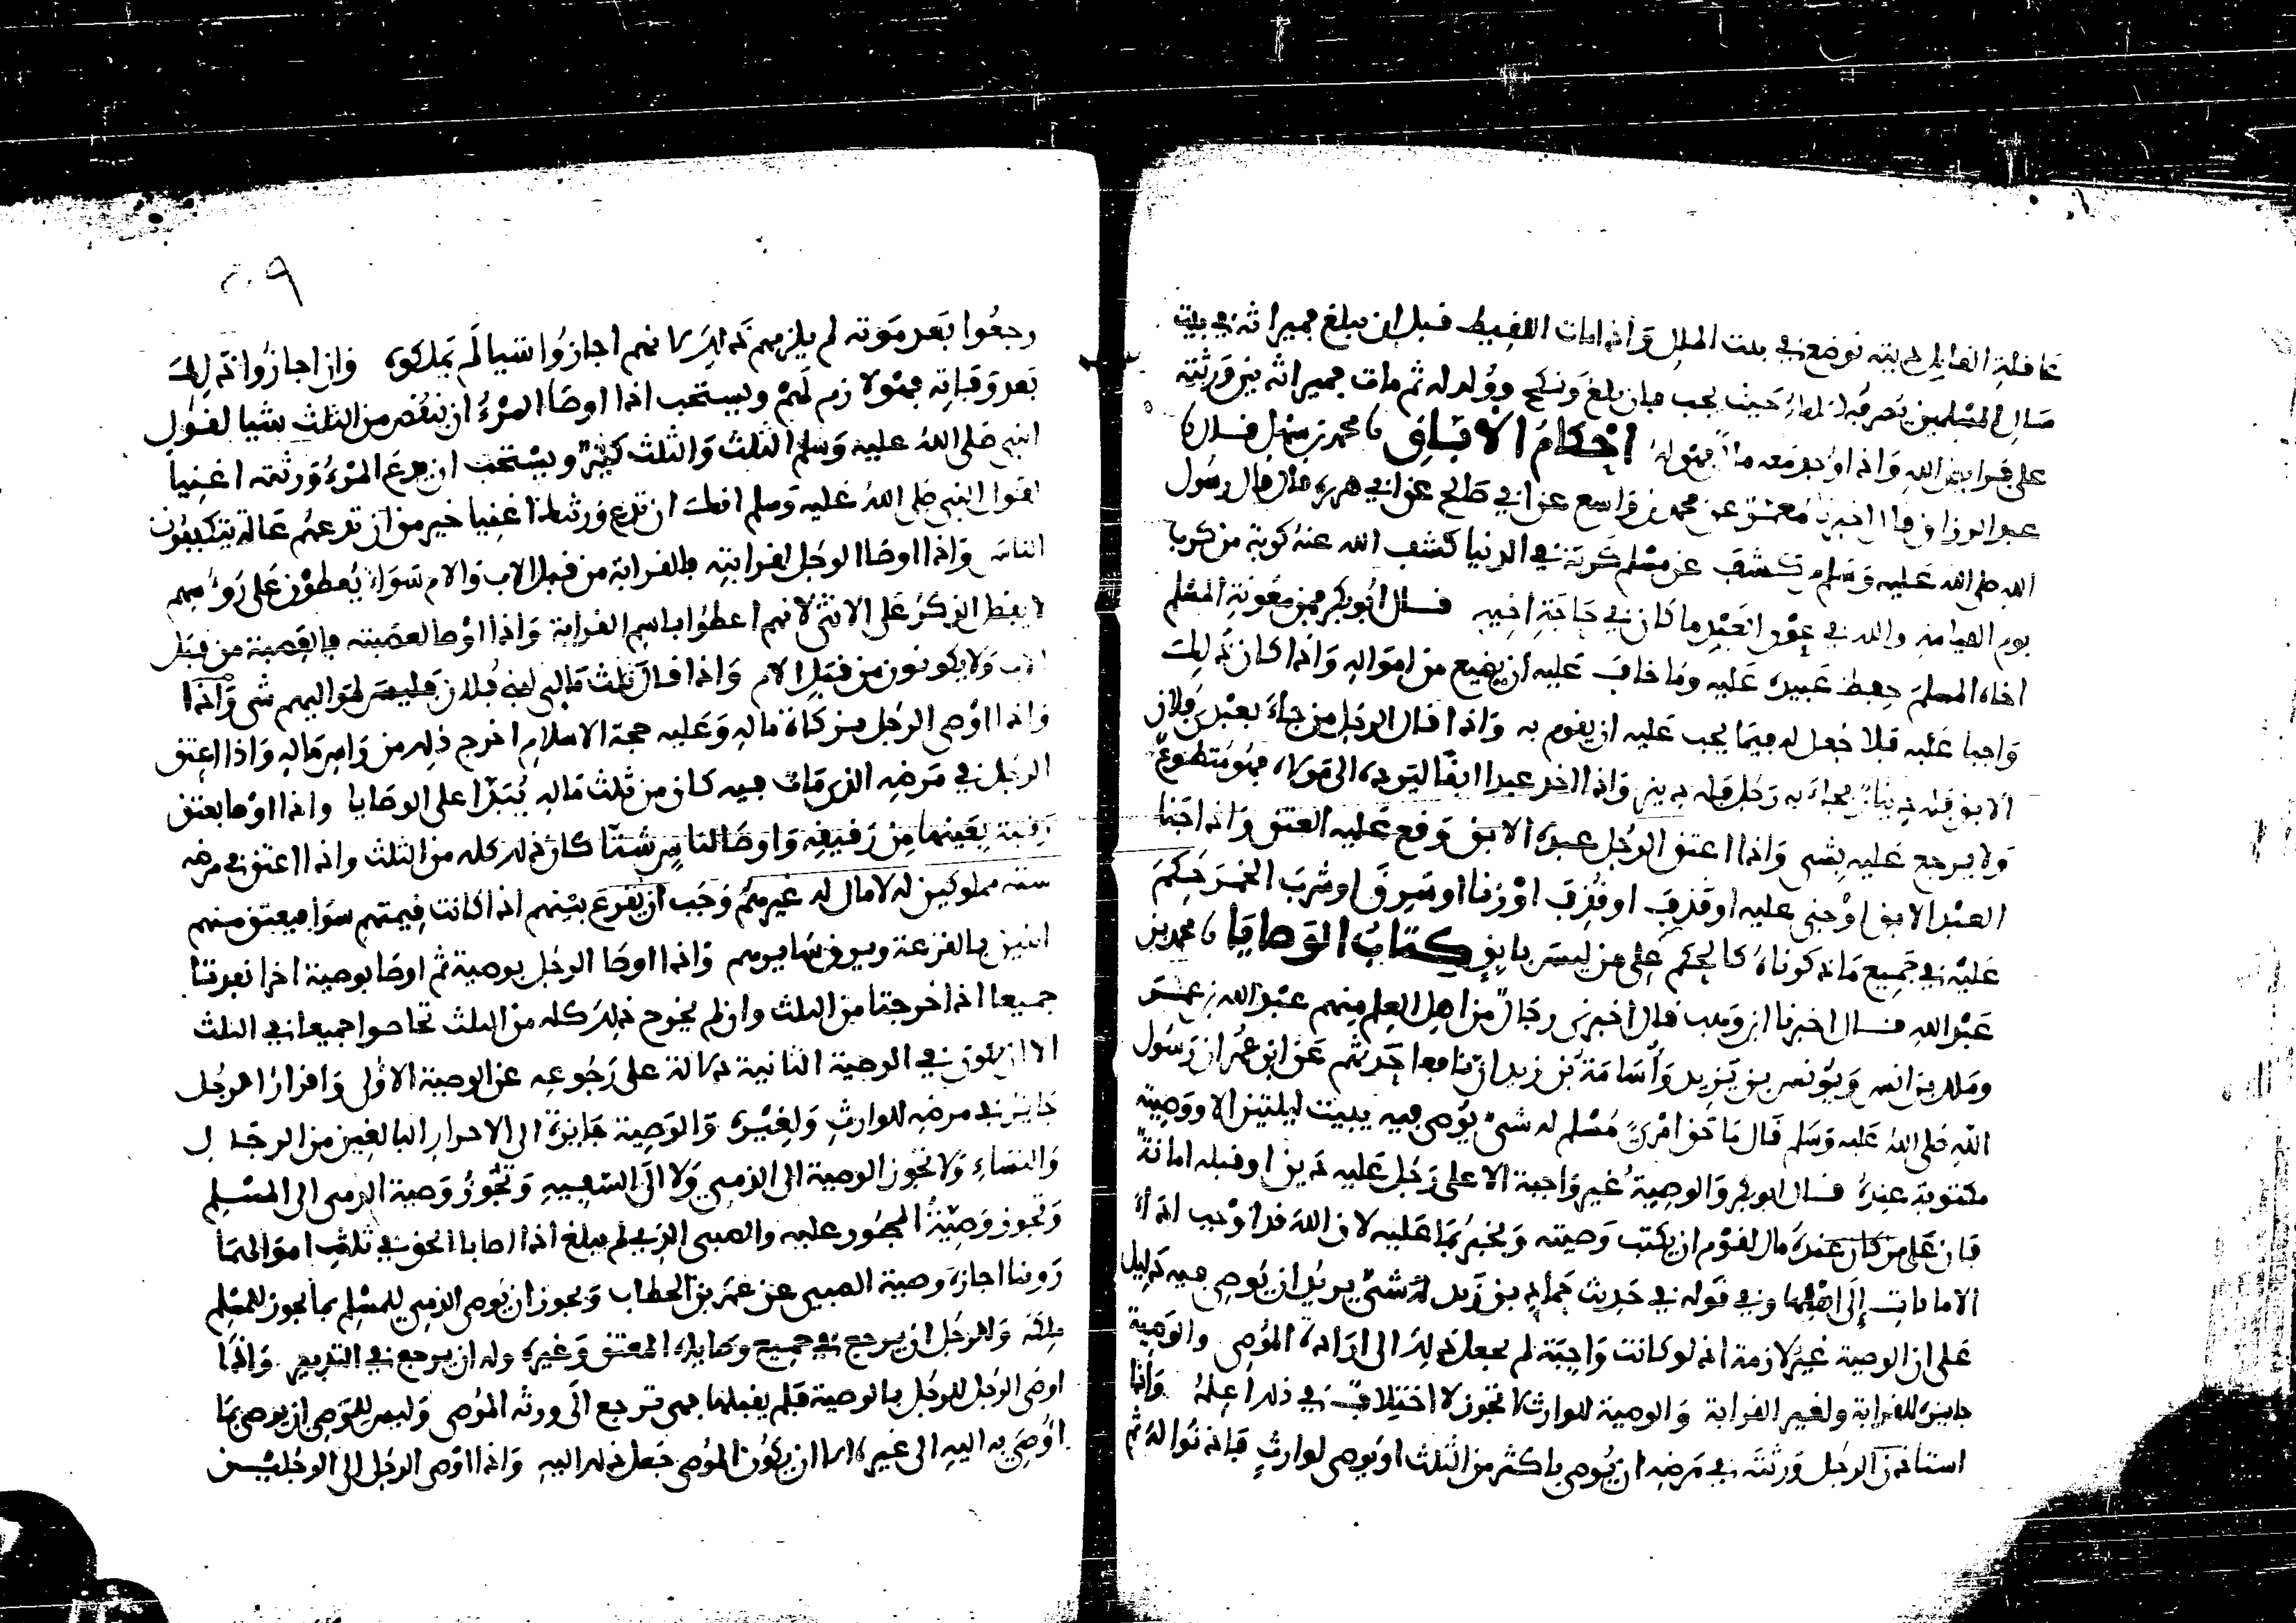 عاقلة القاتل ديته توضع في بيت المال وإذا مات اللقيط قبل أن يبلغ فميراثه في بيت
مال المسلمين يصرفه الإمام حيث يجب فإن بلغ ونكح وولد له ثم مات فميراثه بين ورثته
على فرايض الله وإذا وجد معه مالا فهو له أحكام الأباق نا محمد بن سهل قال نا
عبد الرزاق قال اخبرنا معمر عن محمد بن واسع عن ابي صالح عن ابي هريرة قال قال رسول
الله صلى الله عليه وسلم من كشف عن مسلم كربة في الدنيا كشف الله عنه كربة من كرب
يوم القيامة والله في عون العبد ما كان في حاجة اخيه قال أبو بكر فمن معونة المسلم
اخاه المسلم حفظ عبيده عليه وما خاف عليه ان يضيع من امواله وإذا كان ذلك
واجبا عليه فلا جعل له فيما يجب عليه ان يقوم به وإذا قال الرجل من جاء بعبد فلان
الابق فله دينار فجاء به رجل فله دينر وإذا اخذ عبدا ابقا ليرده الى مولاه فهو متطوع
ولا يرجع عليه بشي وإذا اعتق الرجل عبده الابق وقع عليه العتق وإذا جنا
العبد الابق أو جني عليه أو قذف او قذف أو زنا او سرق او شرب الخمر حكم
عليه في جميع ما ذكرناه كالحكم على من ليس بابق كتاب الوصايا نا محمد بن
عبد الله قال اخبرنا ابن وهب قال أخبرني رجال من اهل العلم منهم عبد الله بن عمر
وملك بن انس ويونس بن يزيد وأسامة بن زيد ان نافعا حدثهم عن ابن عمر ان رسول
الله صلى الله عليه وسلم قال ما حق امرئ مسلم له شيء يوصى فيه يبيت ليلتين الا ووصيته
مكتوبة عنده قال ابو بكر والوصية غير واجبة الا على رجل عليه دين او قبله امانة
فان على من كان عنده مال لقوم ان يكتب وصيته ويخبر بما عليه لان الله قد اوجب أداء
الامانات إلى أهلها وفي قوله في حديث حماد بن زيد له شيء يريد ان يوصي فيه دليل
على ان الوصية غير لازمة اذ لو كانت واجبة لم يجعل ذلك الى ارادة الموصي والوصية
جايزة للقرابة ولغير القرابة والوصية للوارث لا تجوز لا اختلاف في ذلك اعلمه وإذا
استاذن الرجل ورثته في مرضه ان يوصي باكثر من الثلث او يوصي لوارث فاذنوا له ثم
رجعوا بعد موته لم يلزمهم ذلك لانهم اجازوا شيا لم يملكوه وإن اجازوا ذلك
بعد وفاته فهو لازم لهم ويستحب اذا اوصا المرء ان ينقص من الثلث شيا لقول
النبي صلى الله عليه وسلم الثلث والثلث كثير ويستحب ان يدع المرء ورثته اغنيا
لقول النبي صلى الله عليه وسلم انك ان تدع ورثتك اغنيا خير من ان تدعهم عالة يتكففون
الناس وإذا اوصا الرجل لقرابته فالقرابة من قبل الاب والام سواء يعطون على رؤسهم
لا يفضل الذكر على الانثى لانهم اعطوا باسم القرابة وإذا اوصا لعصبته فالعصبة من قبل
الاب ولا يكونون من قبل الام وإذا قال ثلث مالي لبني فلان فليس لمواليهم شي وإذا
وإذا اوصى الرجل بزكاة ماله وعليه حجة الاسلام اخرج ذلك من راس ماله وإذا اعتق
الرجل في مرضه الذي مات فيه كان من ثلث ماله يبدا على الوصايا وإذا اوصا بعتق
رقبة بعينها من رقيقه واوصا لناس شتا كان ذلك كله من الثلث وإذا اعتق في مرضه
ستة مملوكين له لا مال له غيرهم وجب ان يقرع بينهم اذا كانت قيمتهم سوا فيعتق منهم
اثنين بالقرعة ويرق سايرهم وإذا اوصا الرجل بوصية ثم اوصا بوصية اخرا نفذتا
جميعا اذا خرجتا من الثلث وان لم يخرج ذلك كله من الثلث تحاصوا جميعا في الثلث
الا ان يكون في الوصية الثانية دلالة على رجوعه عن الوصية الأولى وإقرار الرجل
جايز في مرضه للوارث ولغيره والوصية جايزة الى الاحرار البالغين من الرجال
والنساء ولا تجوز الوصية الى الذمي ولا الى السفيه وتجوز وصية الذمي الى المسلم
وتجوز وصية المحجور عليه والصبي الذي لم يبلغ اذا اصابا الحق في ثلث اموالهما
روينا اجازة وصية الصبي عن عمر بن الخطاب ويجوز ان يوصي الذمي للمسلم بما يجوز للمسلم
ملكه وللرجل ان يرجع في جميع وصاياه العتق وغيره وله ان يرجع في التدبير وإذا
اوصى الرجل للرجل بالوصية فلم يقبلها فهي ترجع الى ورثة الموصي وليس للوصي ان يوصي بما
اوصي به اليه الى غيره الا ان يكون الموصي جعل ذلك اليه وإذا اوصى الرجل الى الرجلين